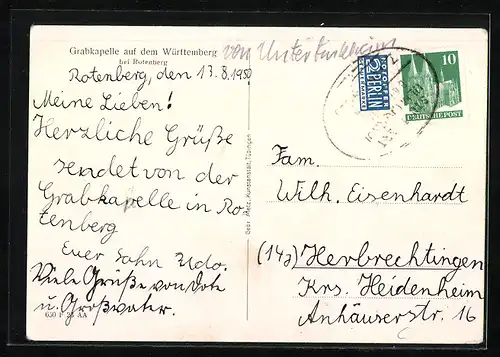 Grabkapelle auf dem Württemberg
bei Rotenberg
von Untertürkheim
Rotenberg, den 13.8.1950
Meine Lieben!
Herzliche Grüße
sendet von der
Grabkapelle in Ro
tenberg
Euer Sohn Udo.
Viele Grüße von Dote
u. Großvater.
650 F 23 AA
Gebr. Metz, Kunstanstalt, Tübingen
NOTOPFER
2 BERLIN
STEUERMARKE
10
DEUTSCHE POST
Fam.
Wilh. Eisenhardt
(14a) Herbrechtingen
Krs. Heidenheim
Anhäuserstr. 16